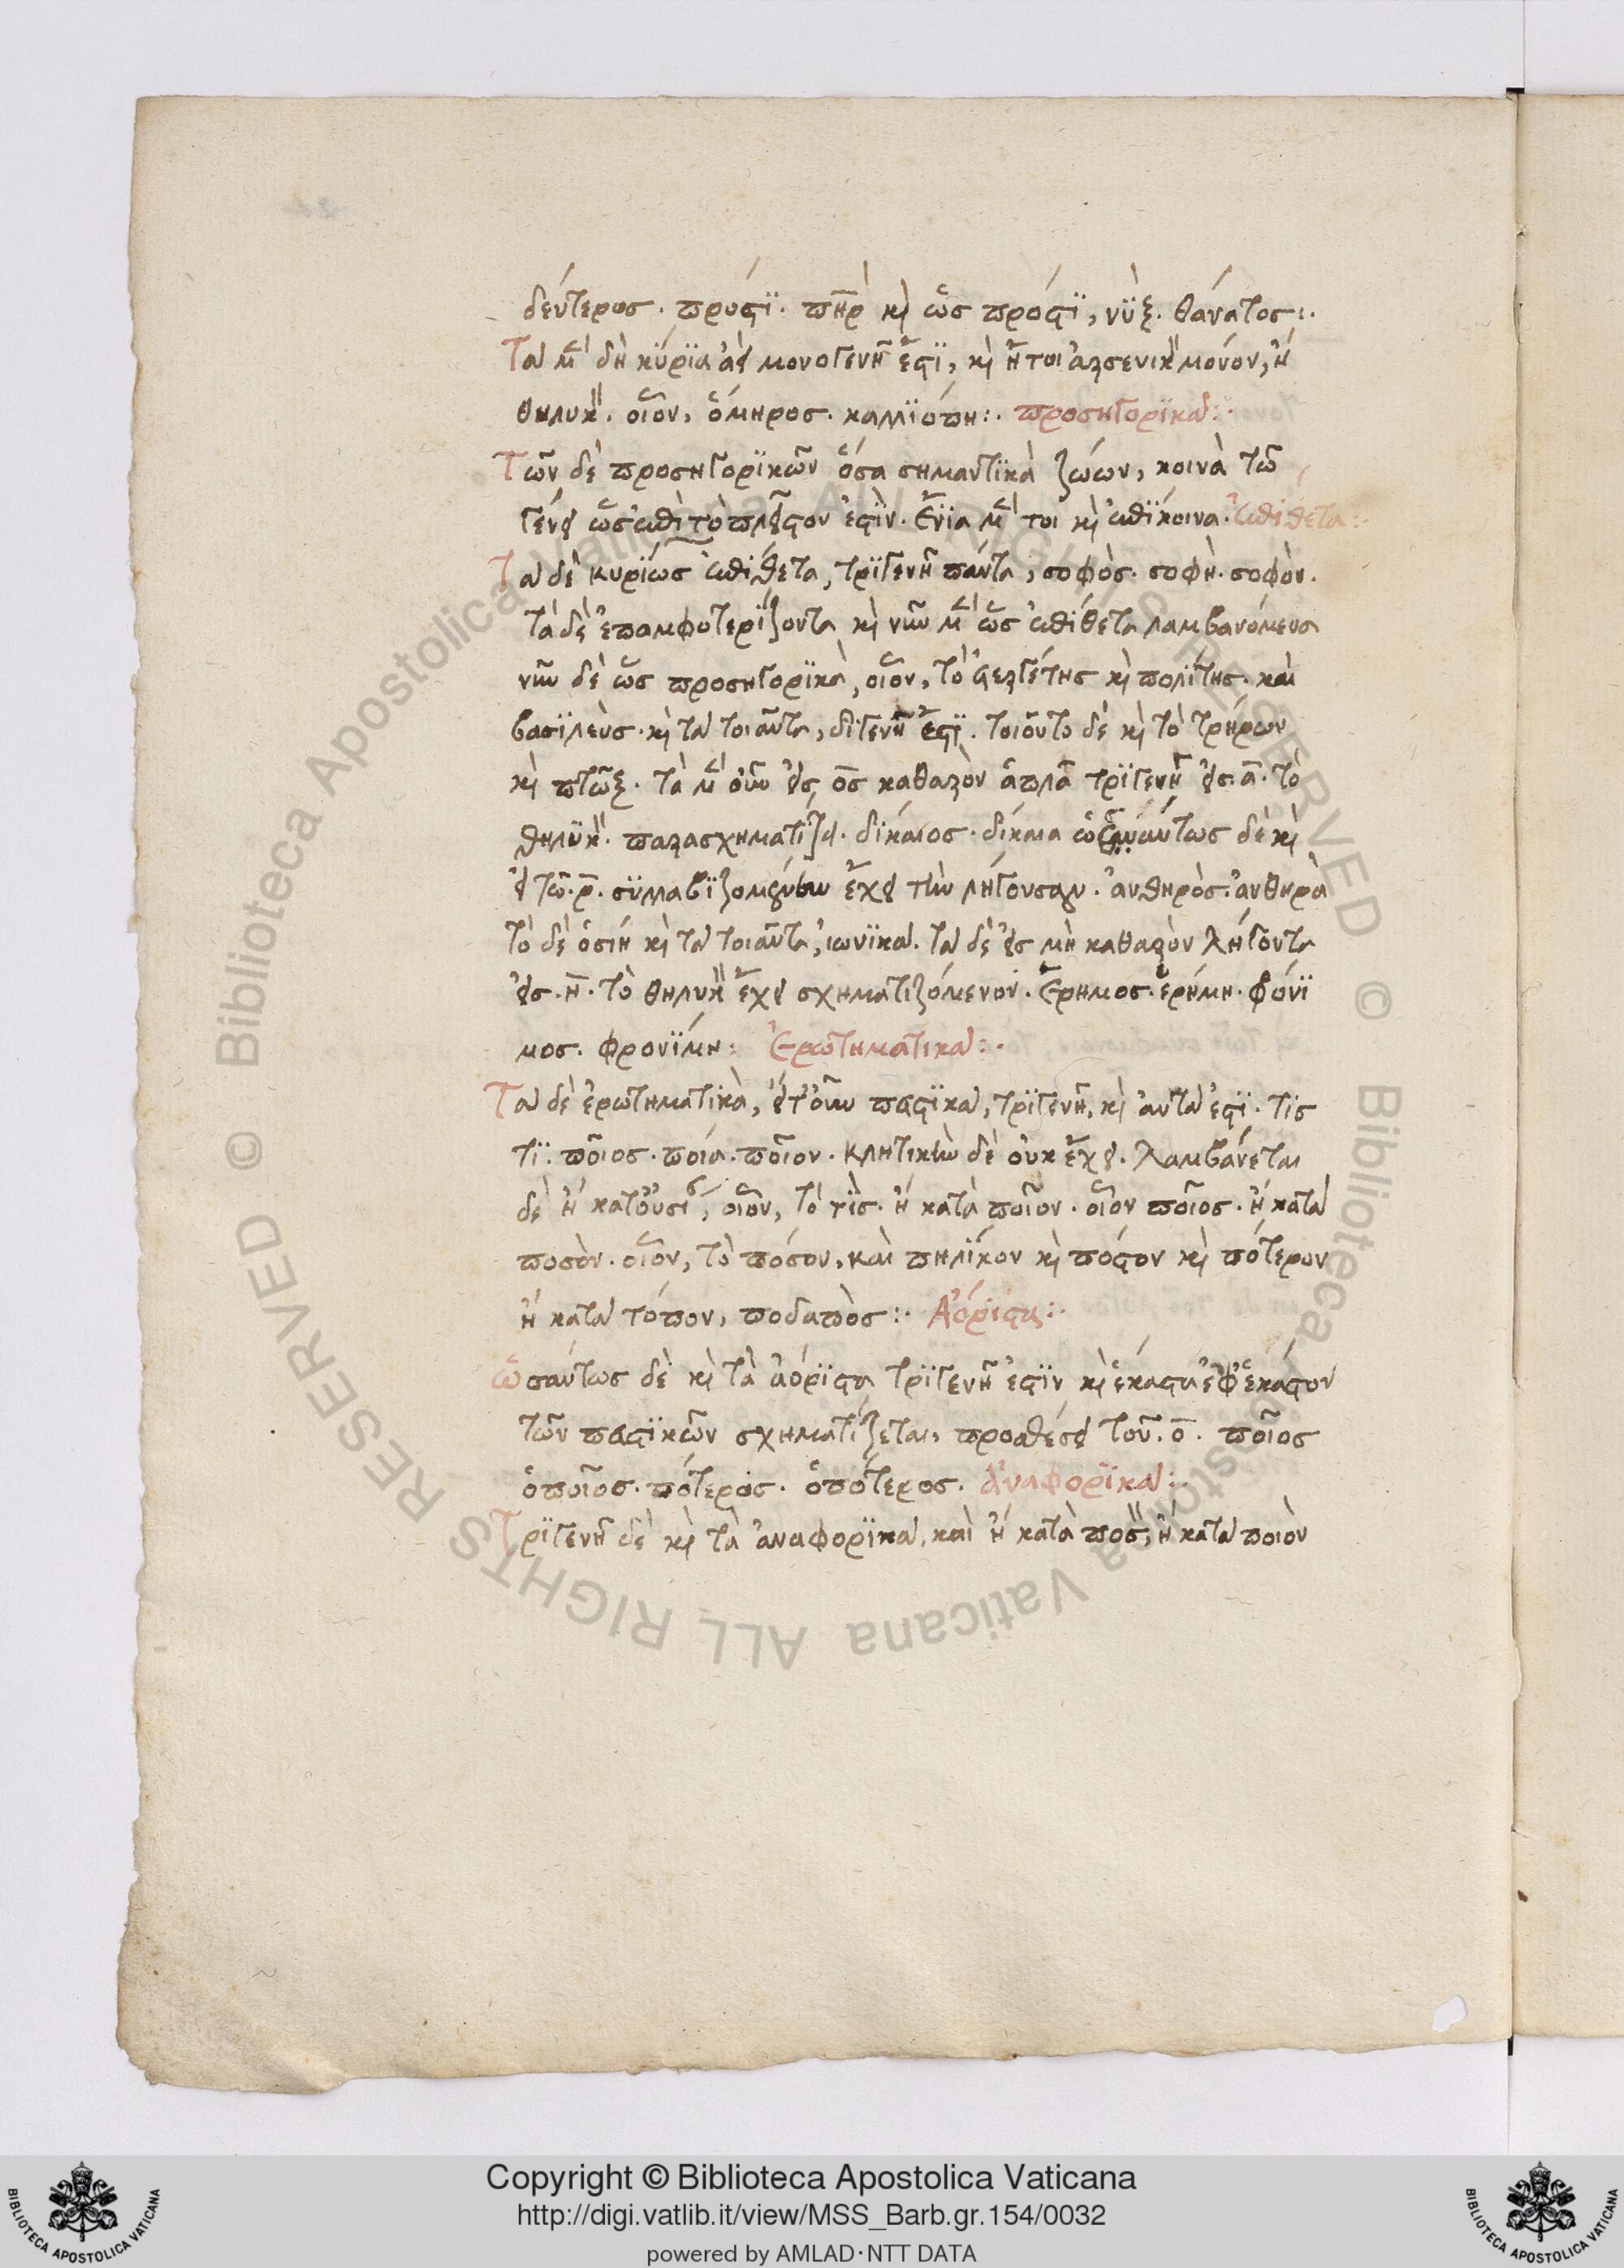 δεύτερος. πρόσϊ. πηρ κὶ ὡς πρόςϊ, νὺξ. θάνατος:.
Τὰ μὲ δὴ κύρϊα ἀεὶ μονογενῆ ἐςϊ, κὶ ἤτοι ἀρσενικ μόνον, ἢ
θηλυκ. οἷον, ὅμηρος. καλλϊόπη:. προσηγορϊκὰ:.
Τῶν δὲ προσηγορϊκῶν ὅσα σημαντϊκὰ ζώων, κοινὰ τῶ
γένει ὡς ἐπὶ τὸ πλεῖςον ἐςὶν. ἔνϊα μέ τοι κὶ ἐπϊκοινα. ἐπίθετα:.
Τὰ δὲ κυρίως ἐπίθετα, τρϊγενῆ πάντα, σοφὸς. σοφὴ. σοφὸν.
τὰ δὲ ἐπαμφοτερϊζοντα κὶ νῦν μὲ ὡς ἐπίθετα λαμβανόμενα
νῦν δὲ ὡς προσηγορϊκὰ, οἷον, τὸ εὐεργέτης κὶ πολίτης. καὶ
βασϊλεὺς. κὶ τὰ τοιαῦτα, διγενῆ ἐςϊ. τοιοῦτο δὲ κὶ τὸ τρήρων
κὶ πτῶξ. τὰ μὲ οὖν εἰς ος καθαρὸν ἁπλᾶ τρϊγενῆ εἰς. α. τὸ
θηλϋκ. παρασχηματίζει. δίκαιος. δίκαια ὡσαύτως δὲ κὶ
εἰ τῶ. ρ. σϋλλαβϊζομένην ἔχει τὴν λήγουσαν. ἀνθηρὸς. ἀνθηρὰ
τὸ δὲ ὁσίη κὶ τὰ τοιαῦτα, ἰωνϊκὰ. τὰ δὲ εἰς μὴ καθαρὸν λήγοντα
εἰς. η. τὸ θηλυκ ἔχει σχηματιζόμενον. ἔρημος. ἐρήμη. φόνϊ
μος. φρονϊμη: Ἐρωτηματικὰ:.
Τὰ δὲ ἐρωτηματϊκὰ, εἴτουν πεςϊκὰ, τρϊγενῆ, κὶ αὐτὰ ἐςϊ. τϊς
τϊ. ποῖος. ποία. ποῖον. κλητικὴν δὲ οὐκ ἔχει. λαμβάνεται
δὲ ἢ κατ οὐσί, οἷον, τὸ τϊς. ἢ κατὰ ποῖον. οἷον ποῖος. ἢ κατὰ
ποσὸν. οἷον, τὸ πόσον, καὶ πηλϊκον κὶ πόςον κὶ πότερον
ἢ κατὰ τόπον, ποδαπὸς:. Ἀόριςα:.
ὡσαύτως δὲ κὶ τὰ ἀόρϊςα τρϊγενῆ ἐςϊν κὶ ἕκαςα ἐφ ἑκάςον
τῶν πεςϊκῶν σχηματίζεται, προσθέσει τοῦ. ο. ποῖος
ὁποῖος. πότερος. ὁπότερος. ἀναφορϊκὰ:.
Τρϊγενῆ δὲ κὶ τὰ ἀναφορϊκὰ, καὶ ἢ κατὰ ποσ, ἢ κατὰ ποιὸν
Copyright © Biblioteca Apostolica Vaticana
http://digi.vatlib.it/view/MSS_Barb.gr.154/0032
powered by AMLAD·NTT DATA